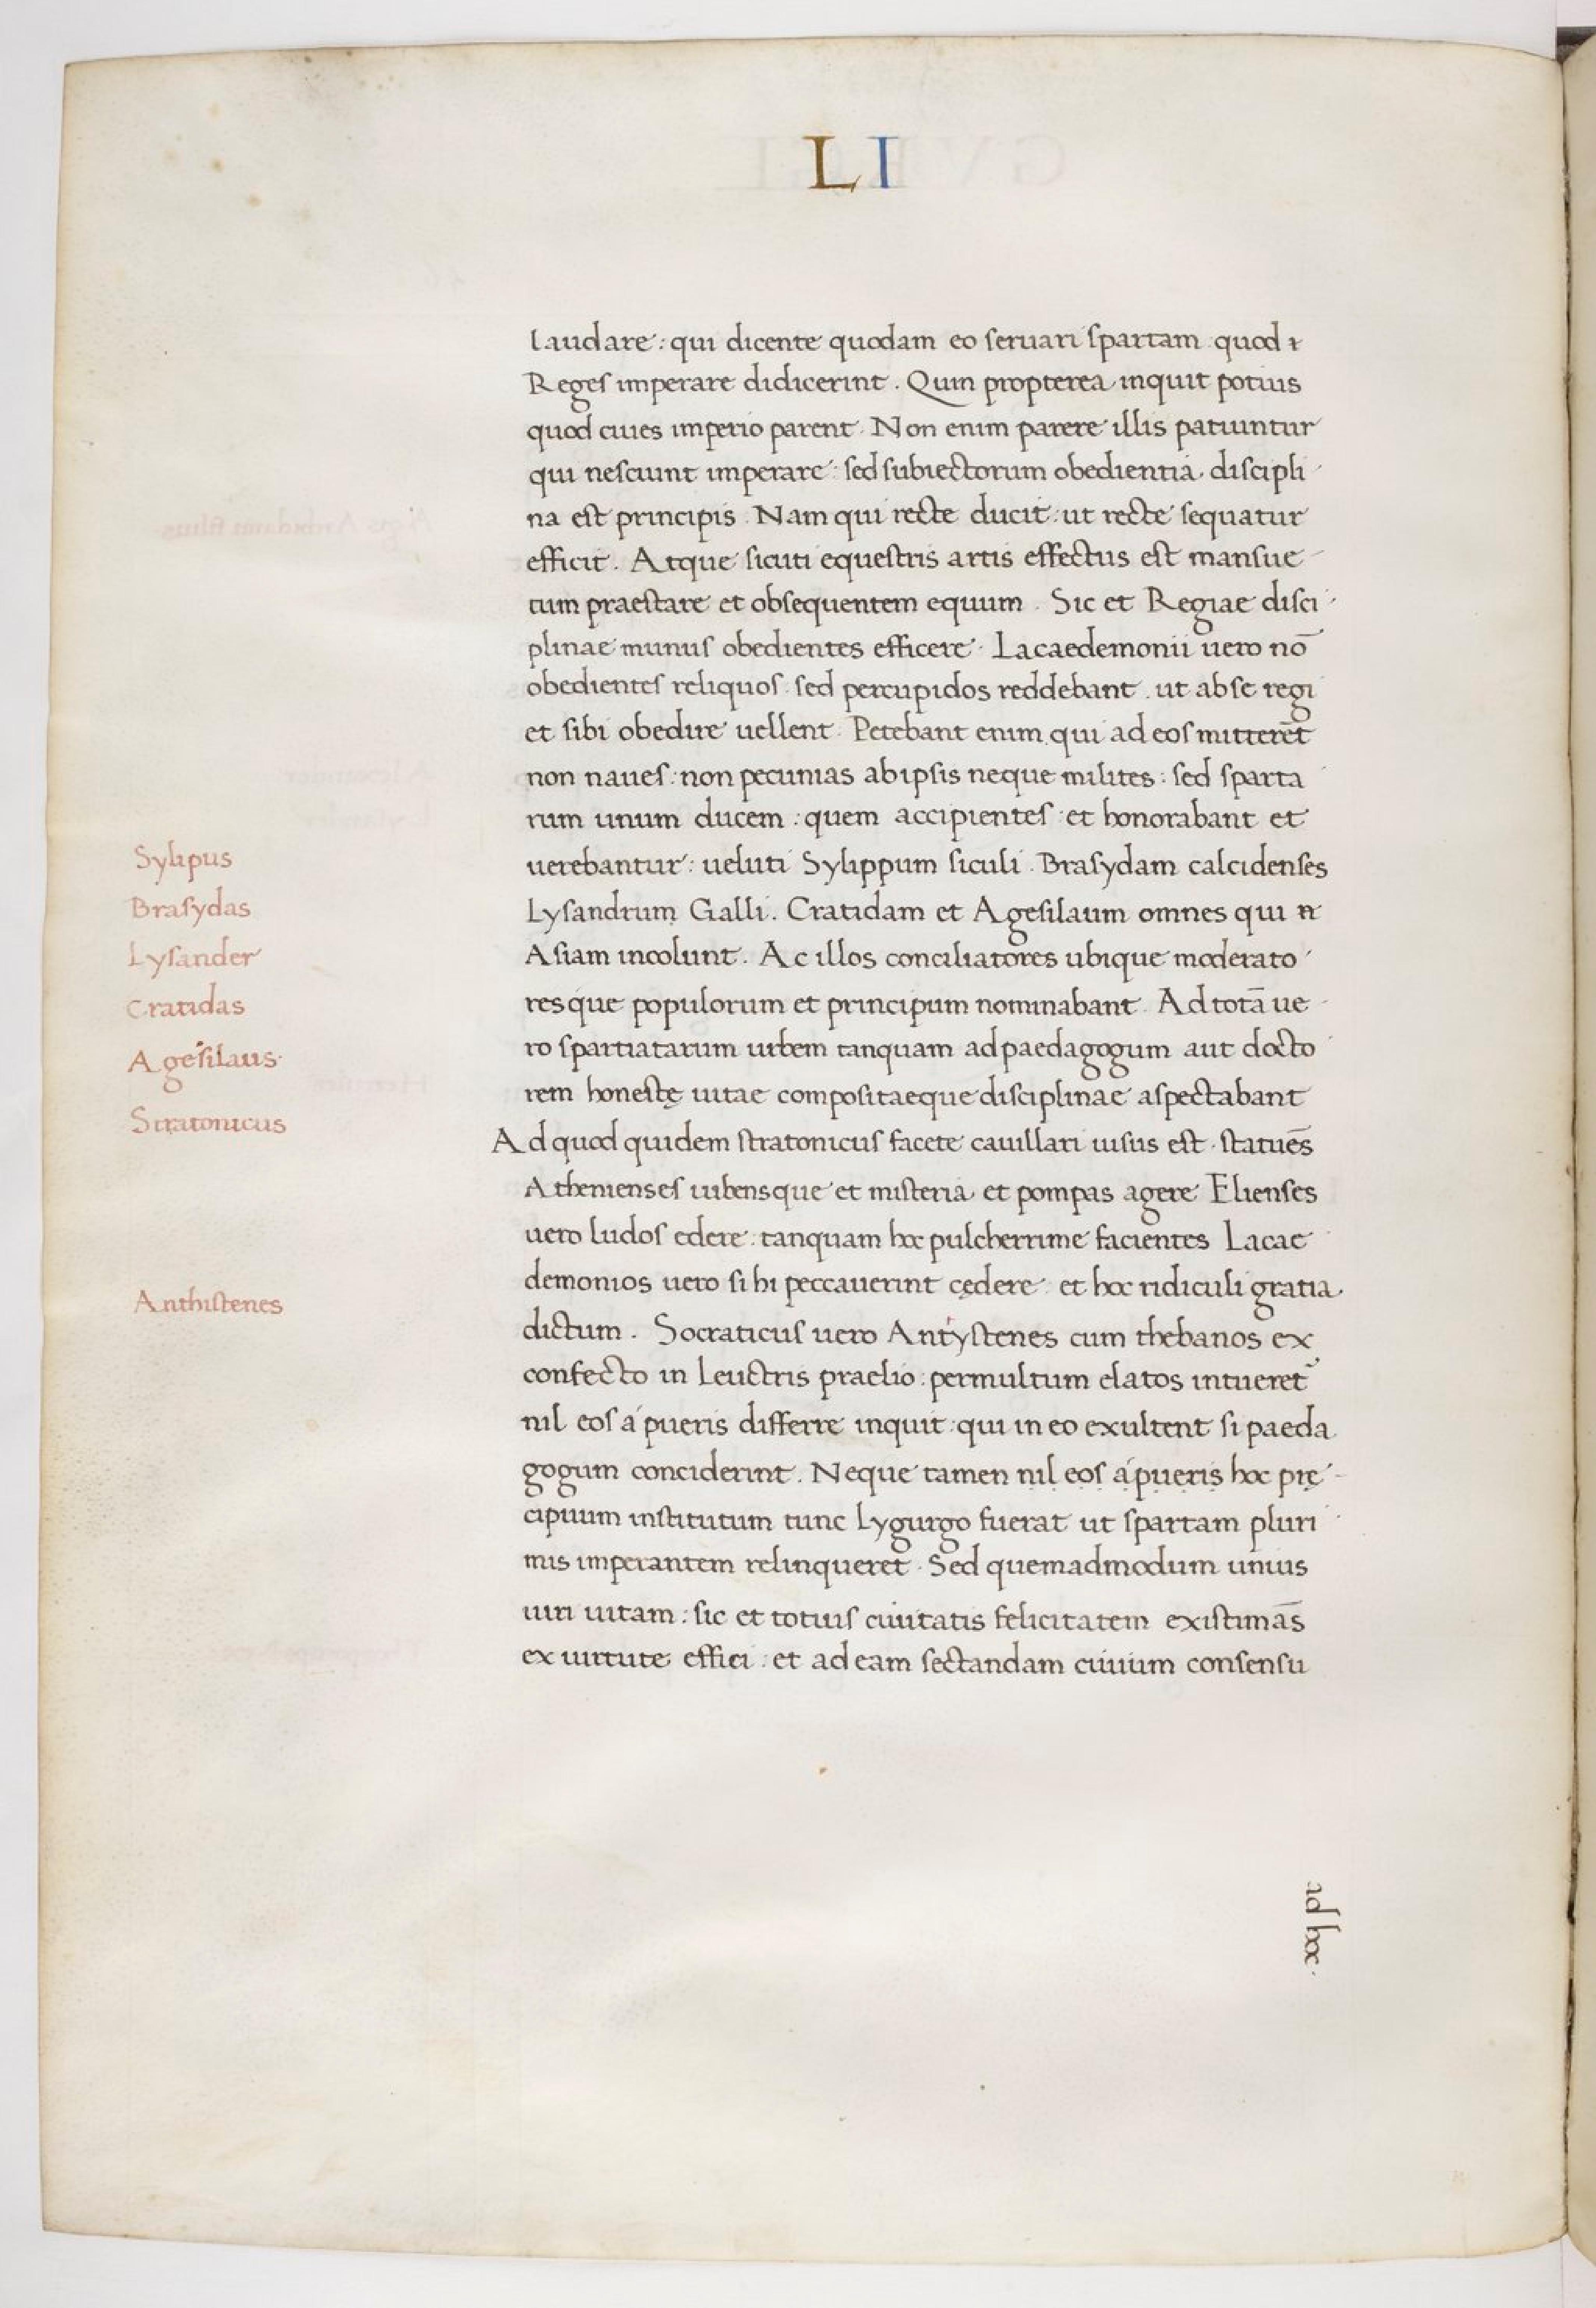 LI
laudare: qui dicente quodam eo seruari spartam quod
Reges imperare didicerint. Quin propterea inquit potius
quod ciues imperio parent. Non enim parere illis patiuntur
qui nesciunt imperare: sed subiectorum obedientia discipli
na est principis. Nam qui recte ducit: ut recte sequatur
efficit. Atque sicuti equestris artis effectus est mansue
tum praestare et obsequentem equum. Sic et Regiae disci
plinae munus obedientes efficere. Lacaedemonii uero nō
obedientes reliquos: sed percupidos reddebant. ut ab se regi
et sibi obedire uellent. Petebant enim qui ad eos mitterēt
non naues: non pecunias ab ipsis neque milites: sed sparta
rum unum ducem: quem accipientes: et honorabant et
Sylipus
uerebantur: ueluti Sylippum siculi. Brasydam calcidenses
Brasydas
Lysandrum Galli. Cratidam et Agesilaum omnes qui
Lysander
Asiam incolunt. Ac illos conciliatores ubique moderato
Cratidas
resque populorum et principum nominabant. Ad totā ue
Agesilaus.
ro spartiatarum urbem tanquam ad paedagogum aut docto
rem honestę uitae compositaeque disciplinae aspectabant
Stratonicus
Ad quod quidem stratonicus facete cauillari uisus est. statuēs
Athenienses iubensque et misteria et pompas agere Elienses
uero ludos edere: tanquam hoc pulcherrime facientes Lacae
demonios uero si hi peccauerint cędere: et hoc ridiculi gratia
Anthistenes
dictum. Socraticus uero Antystenes cum thebanos ex
confecto in leuctris praelio: permultum elatos intueret
nil eos á pueris differre inquit: qui in eo exultent si paeda
gogum conciderint. Neque tamen nil eos á pueris hoc prę
cipuum institutum tunc lygurgo fuerat ut spartam pluri
mis imperantem relinqueret. Sed quemadmodum unius
uiri uitam: sic et totius ciuitatis felicitatem existimās
ex uirtute effici: et ad eam sectandam ciuium consensu
ad hoc.